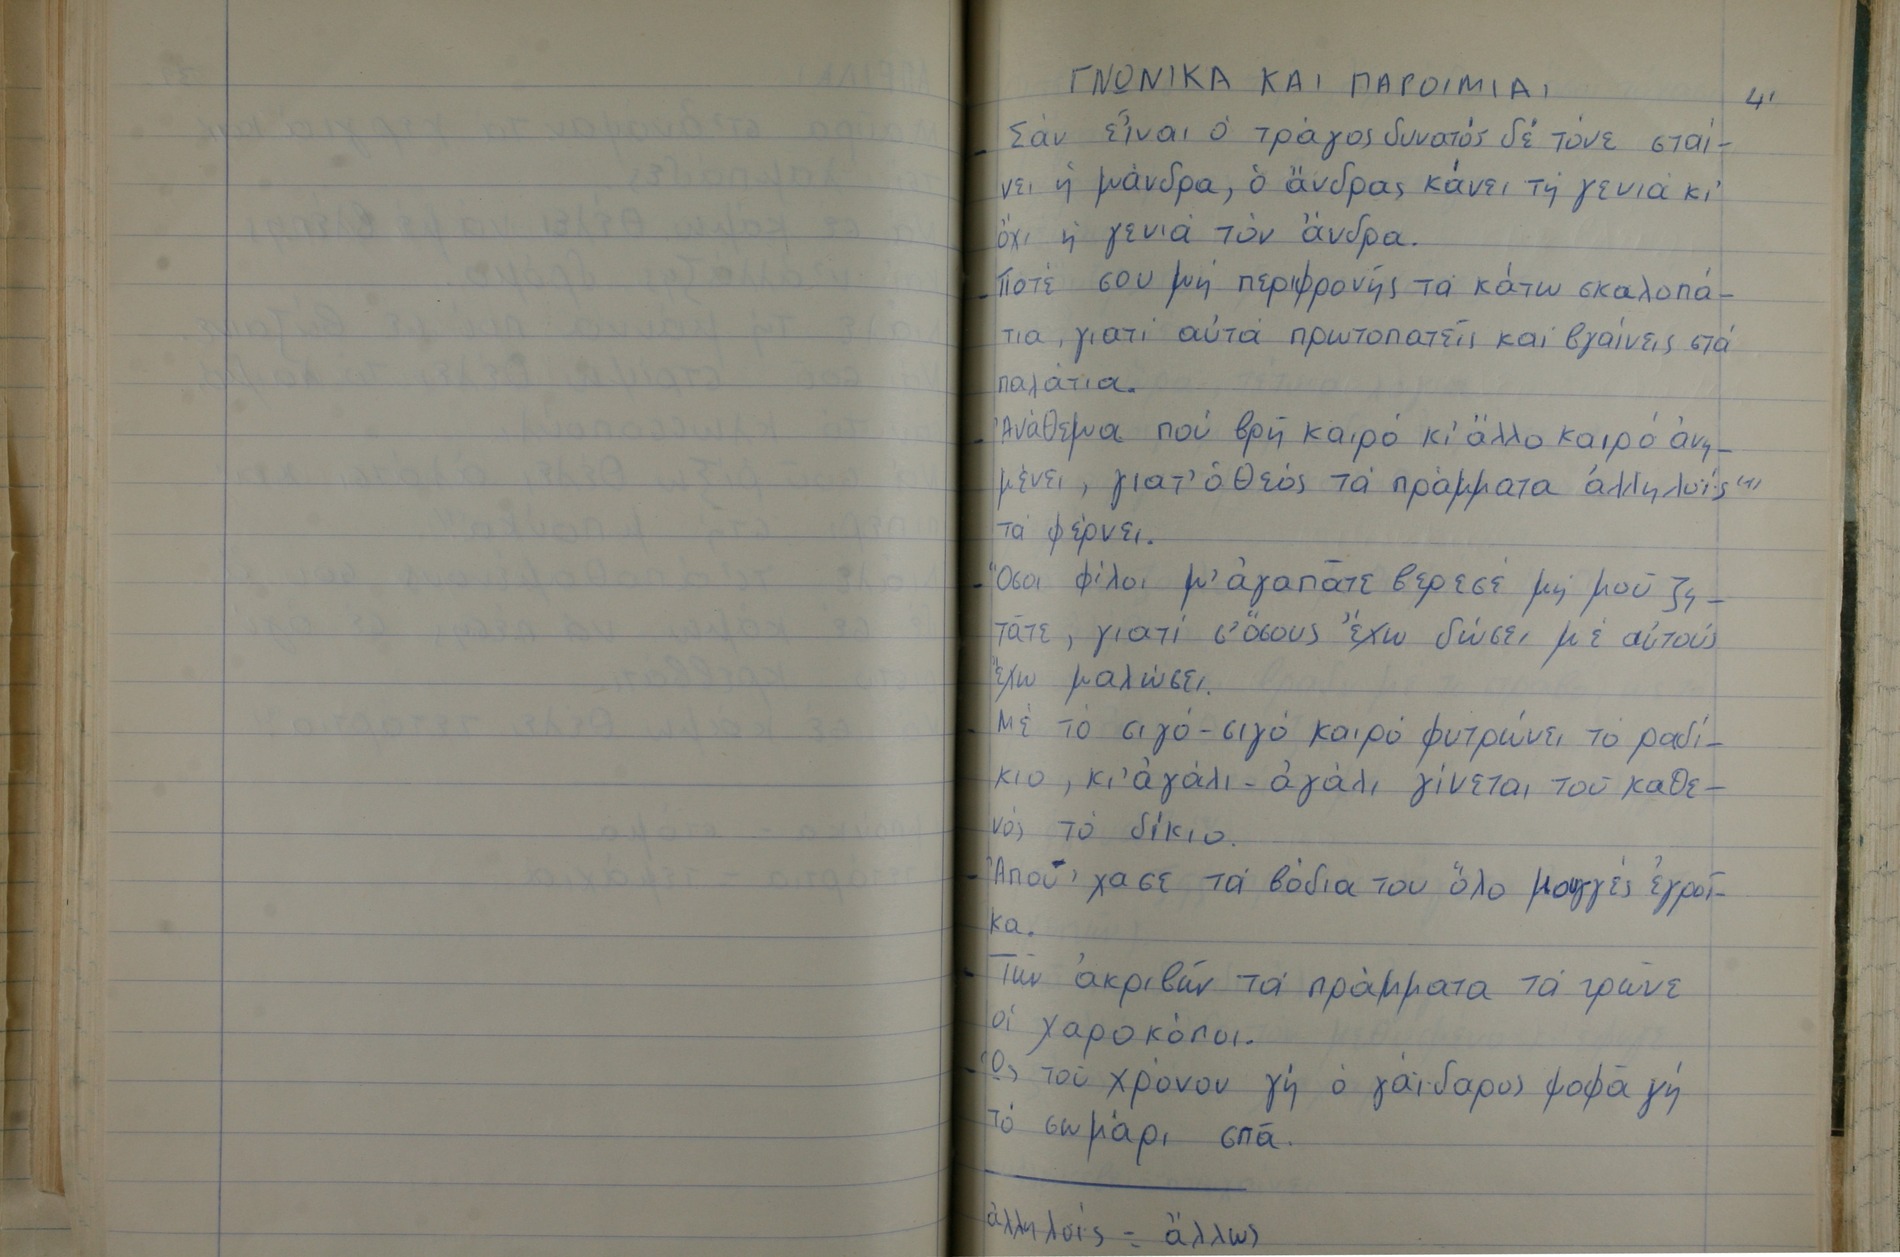 ΓΝΩΝΙΚΑ ΚΑΙ ΠΑΡΟΙΜΙΑΙ
41
- Σάν εἶναι ὁ τράγος δυνατός δέ τόνε σταί-
νει ἡ μάνδρα, ὁ ἄνδρας κάνει τή γενιά κι'
ὄχι ἡ γενιά τόν ἄνδρα.
- Ποτέ σου μή περιφρονῆς τά κάτω σκαλοπά-
τια, γιατί αὐτά πρωτοπατεῖς καί βγαίνεις στά
παλάτια.
- Ἀνάθεμα πού βρῆ καιρό κι' ἄλλο καιρό ἀνη-
μένει, γιατ' ὁ θεός τά πράμματα ἀλληλοίς (1)
τά φέρνει.
- Ὅσοι φίλοι μ' ἀγαπᾶτε βερεσέ μή μοῦ ζη-
τᾶτε, γιατί σ' ὅσους ἔχω δώσει μέ αὐτούς
ἔχω μαλώσει.
- Μέ τό σιγό-σιγό καιρό φυτρώνει τό ραδί-
κιο, κι' ἀγάλι-ἀγάλι γίνεται τοῦ καθε-
νός τό δίκιο.
- Ἀποῦ 'χασε τά βόδια του ὅλο μουγγές ἐγροί-
κα.
- Τῶν ἀκριβῶν τά πράμματα τά τρῶνε
οἱ χαροκόποι.
- Ὥς τοῦ χρόνου γή ὁ γάϊδαρος ψοφᾶ γή
τό σωμάρι σπᾶ.
ἀλληλοίς = ἄλλως